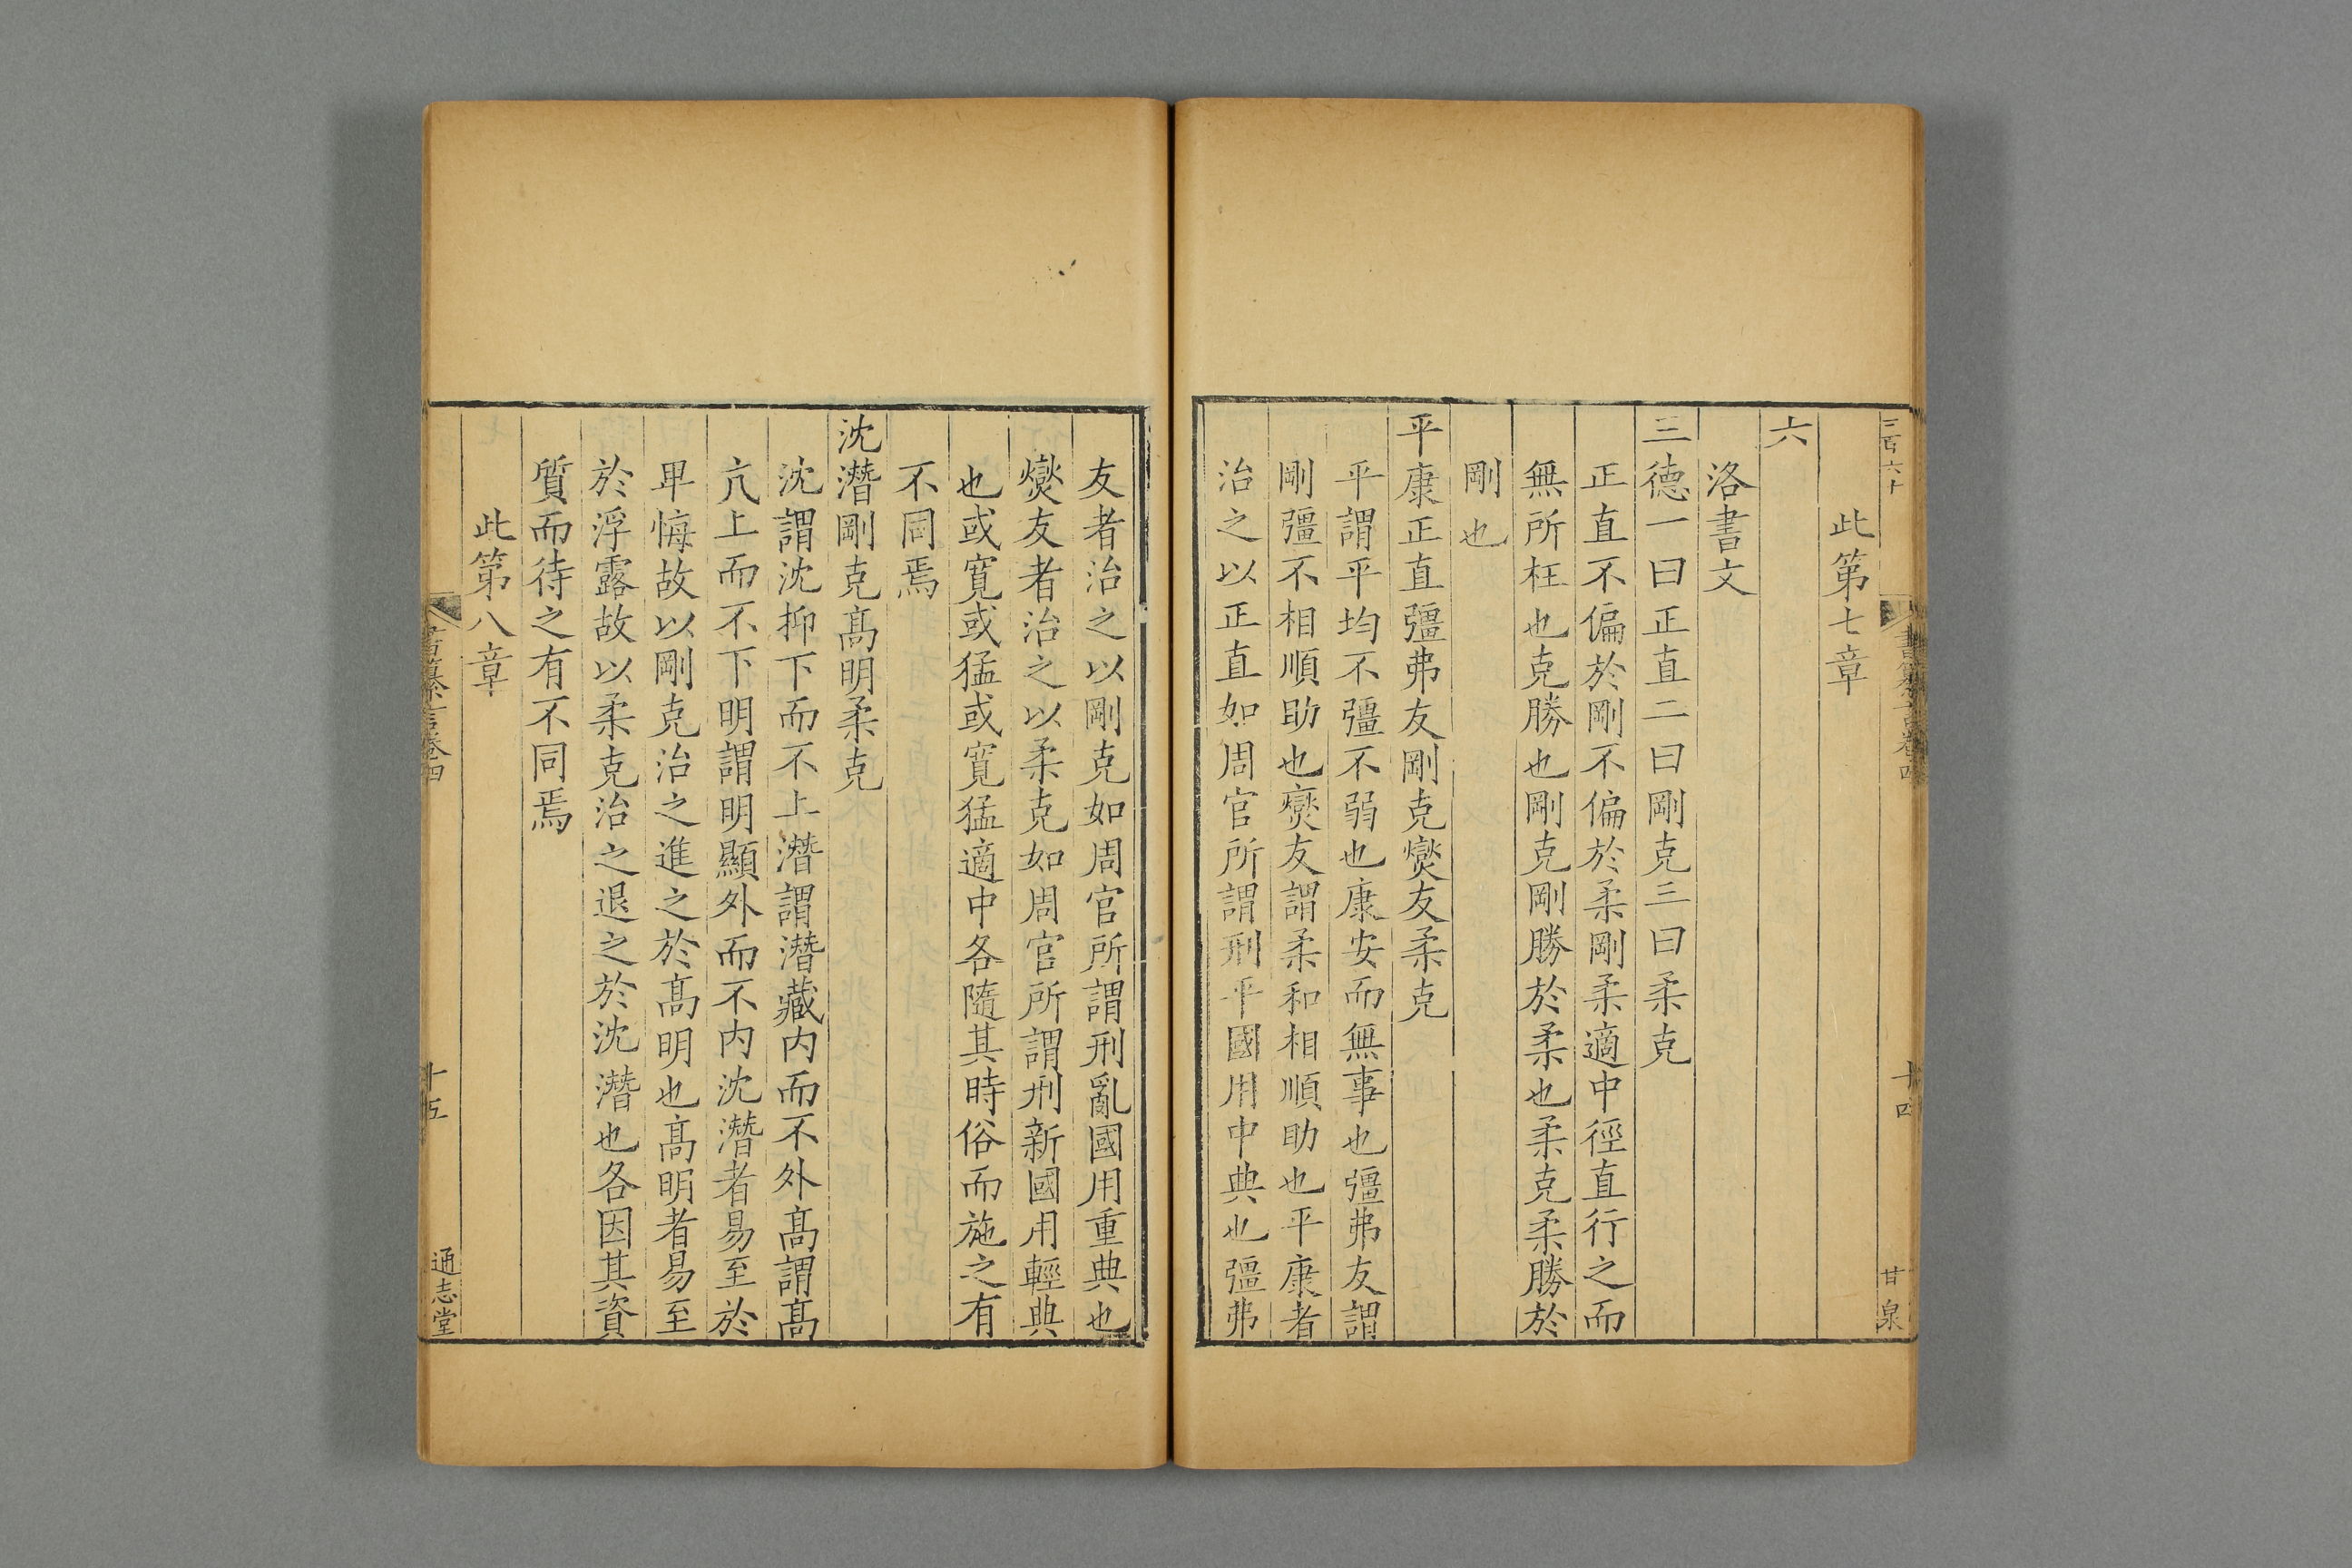 三百六十
書纂言卷四
十四
甘泉
此第七章
六
洛書文
三德一曰正直二曰剛克三曰柔克
正直不偏於剛不偏於柔剛柔適中徑直行之而
無所枉也克勝也剛克剛勝於柔也柔克柔勝於
剛也
平康正直彊弗友剛克燮友柔克
平謂平均不彊不弱也康安而無事也彊弗友謂
剛彊不相順助也燮友謂柔和相順助也平康者
治之以正直如周官所謂刑平國用中典也彊弗
友者治之以剛克如周官所謂刑亂國用重典也
燮友者治之以柔克如周官所謂刑新國用輕典
也或寬或猛或寬猛適中各隨其時俗而施之有
不同焉
沈潛剛克髙明柔克
沈謂沈抑下而不上潛謂潛藏内而不外髙謂髙
亢上而不下明謂明顯外而不内沈潛者易至於
畀悔故以剛克治之進之於髙明也髙明者易至
於浮露故以柔克治之退之於沈潛也各因其資
質而待之有不同焉
此第八章
書纂言卷四
十五
通志堂